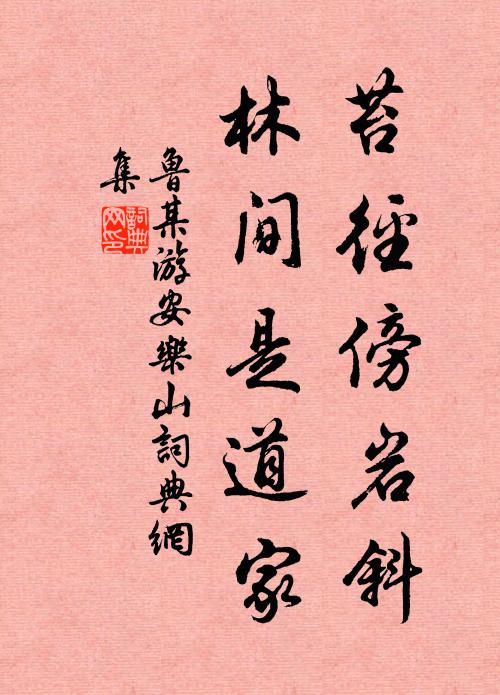 苔徑傍岩斜
林間是道家
魯某游安樂山詞典網
集
詞典網印